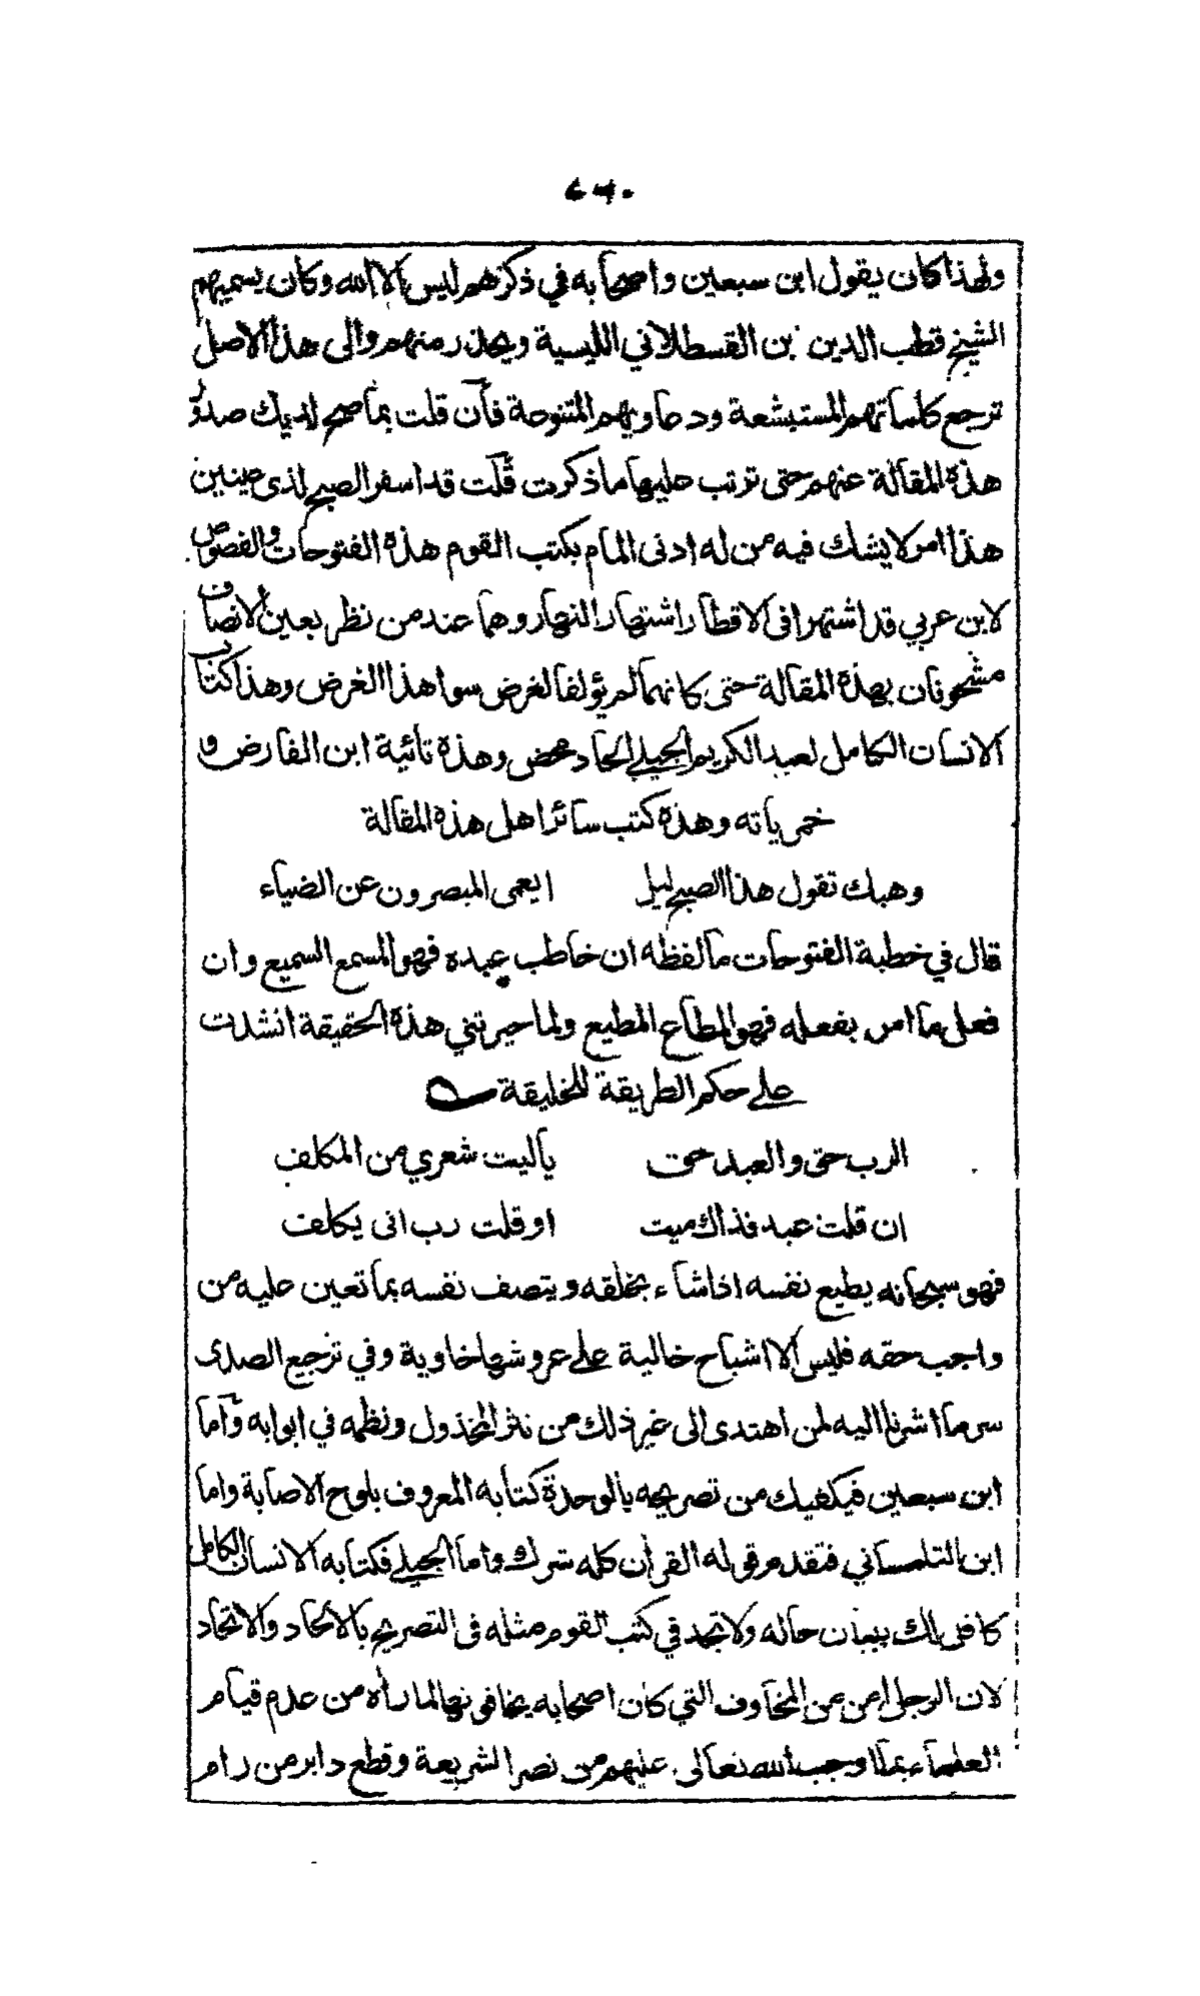 ولهذا كان يقول ابن سبعين واصحابه في ذكرهم ليس الا الله وكان يسميهم
الشيخ قطب الدين بن القسطلاني الليسية ويحذر منهم والى هذا الاصل
ترجع كلماتهم المستبشعة ودعاويهم المتنوحة فان قلت بما صح لديك صدور
هذه المقالة عنهم حتى ترتب عليها ما ذكرت قلت قد اسفر الصبح لذي عينين
هذا امر لا يشك فيه من له ادنى المام بكتب القوم هذه الفتوحات والفصوص
لابن عربي قد اشتهرا في الاقطار اشتهار النهار وهما عند من نظر بعين الانصاف
مشحونان بهذه المقالة حتى كانهما لم يؤلفا لغرض سوا هذا الغرض وهذا كتاب
الانسان الكامل لعبد الكريم الجيلي الحاد محض وهذه تائية ابن الفارض و
خمرياته وهذه كتب سائر اهل هذه المقالة
وهبك تقول هذا الصبح ليل ايعمى المبصرون عن الضياء
قال في خطبة الفتوحات ما لفظه ان خاطب عبده فهو المسمع السميع وان
فعل ما امر بفعله فهو المطاع المطيع ولما حيرتني هذه الحقيقة انشدت
على حكم الطريقة للخليقة
الرب حق والعبد حق ياليت شعري من المكلف
ان قلت عبد فذاك ميت او قلت رب انى يكلف
فهو سبحانه يطيع نفسه اذا شاء بخلقه ويتصف نفسه بما تعين عليه من
واجب حقه فليس الا اشباح خالية على عروشها خاوية وفي ترجيع الصدى
سر ما اشرنا اليه لمن اهتدى الى غير ذلك من نثر المخذول ونظمه في ابوابه واما
ابن سبعين فيكفيك من تصريحه بالوحدة كتابه المعروف بلوح الاصابة واما
ابن التلمساني فتقدم قوله القرأن كله شرك واما الجيلي فكتابه الانسان الكامل
كافل لك ببيان حاله ولا تجد في كتب القوم مثله في التصريح بالالحاد والاتحاد
لان الرجل امن من المخاوف التي كان اصحابه يخافونها لما رأه من عدم قيام
العلماء بما اوجب الله تعالى عليهم من نصر الشريعة وقطع دابر من رام